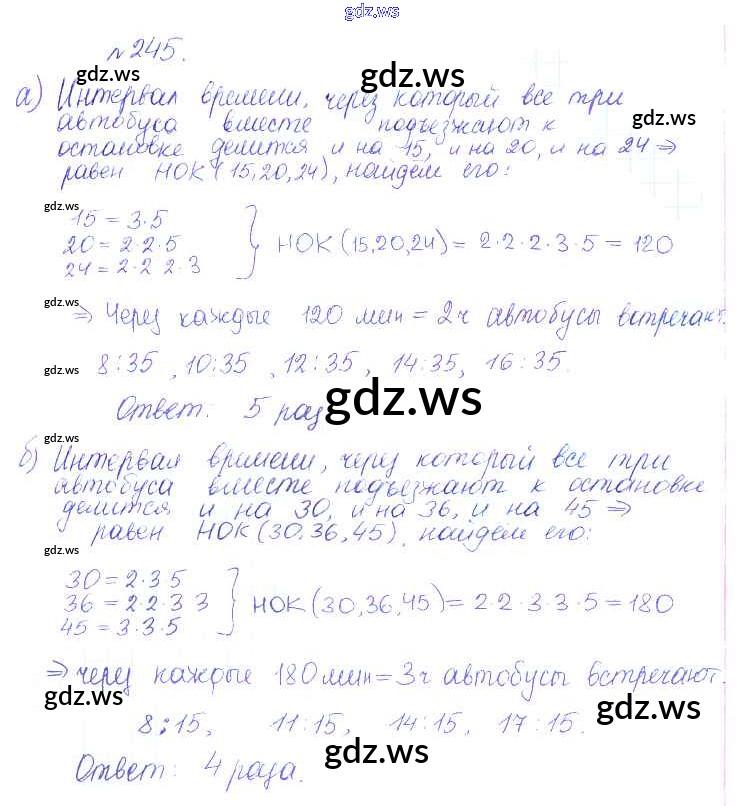 gdz.ws
№ 245.
gdz.ws gdz.ws
а) Интервал времени, через который все три
автобуса вместе подъезжают к gdz.ws
остановке делится и на 15, и на 20, и на 24 ⇒
равен НОК (15,20,24), найдём его:
gdz.ws
15 = 3·5
20 = 2·2·5 } НОК (15,20,24) = 2·2·2·3·5 = 120
24 = 2·2 2·3
gdz.ws
⇒ Через каждые 120 мин = 2ч автобусы встречают.
gdz.ws 8:35, 10:35, 12:35, 14:35, 16:35.
Ответ: 5 раз gdz.ws
gdz.ws
б) Интервал времени, через который все три
автобуса вместе подъезжают к остановке
делится и на 30, и на 36, и на 45 ⇒
равен НОК (30,36,45), найдём его:
gdz.ws
30 = 2·3 5
36 = 2·2·3 3 } НОК (30,36,45) = 2·2·3·3·5 = 180
45 = 3·3·5
⇒ через каждые 180 мин = 3ч автобусы встречают.
gdz.ws gdz.ws
8:15, 11:15, 14:15, 17:15.
gdz.ws
Ответ: 4 раза.